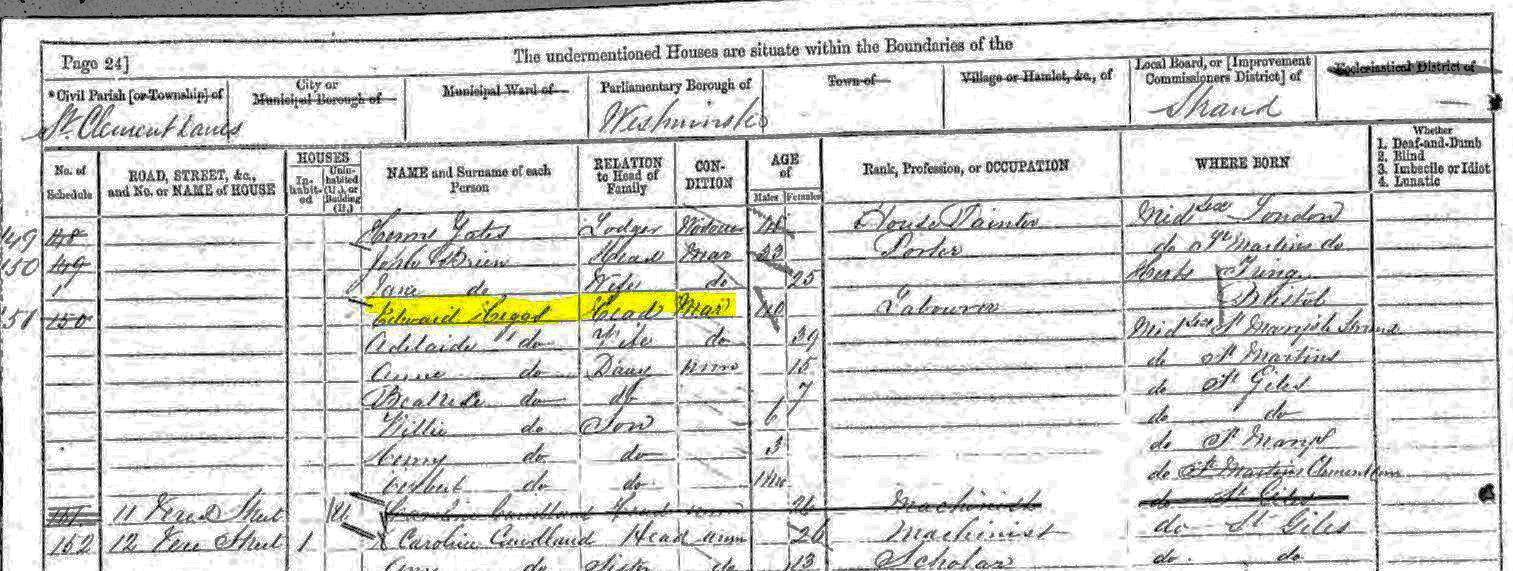 Page 24]
The undermentioned Houses are situate within the Boundaries of the
*Civil Parish [or Township] of
City or Municipal Borough of
Municipal Ward of
Parliamentary Borough of
Town of
Village or Hamlet, &c., of
Local Board, or [Improvement Commissioners District] of
Ecclesiastical District of
St. Clement Danes
Westminster
Strand
No. of Schedule
ROAD, STREET, &c., and No. or NAME of HOUSE
HOUSES
Inhabited
Uninhabited (U.), or Building (B.)
NAME and Surname of each Person
RELATION to Head of Family
CONDITION
AGE of
Males
Females
Rank, Profession, or OCCUPATION
WHERE BORN
Whether
1. Deaf-and-Dumb
2. Blind
3. Imbecile or Idiot
4. Lunatic
149 148 Yates Lodger Widower House Painter Midsex London
150 149 John O'Brien Head Mar 22 Porter do St Martins do
1 Jane do Wife do 25 Herts Tring
151 150 Edward Head Mar 40 Labourer Bristol
Adelaide do Wife do 39 Midsex St Mary le Strand
Anne do Daur unm 15 do St Martins
Beatrice do do 7 do St Giles
Willie do Son 6 do do
Henry do do 3 do
do do do St Martins Clement
151 11 Street U Caroline Head 26 Machinist do St Giles
152 12 Vere Street 1 Caroline Head unm 26 Machinist do St Giles
Sister do 13 Scholar do do